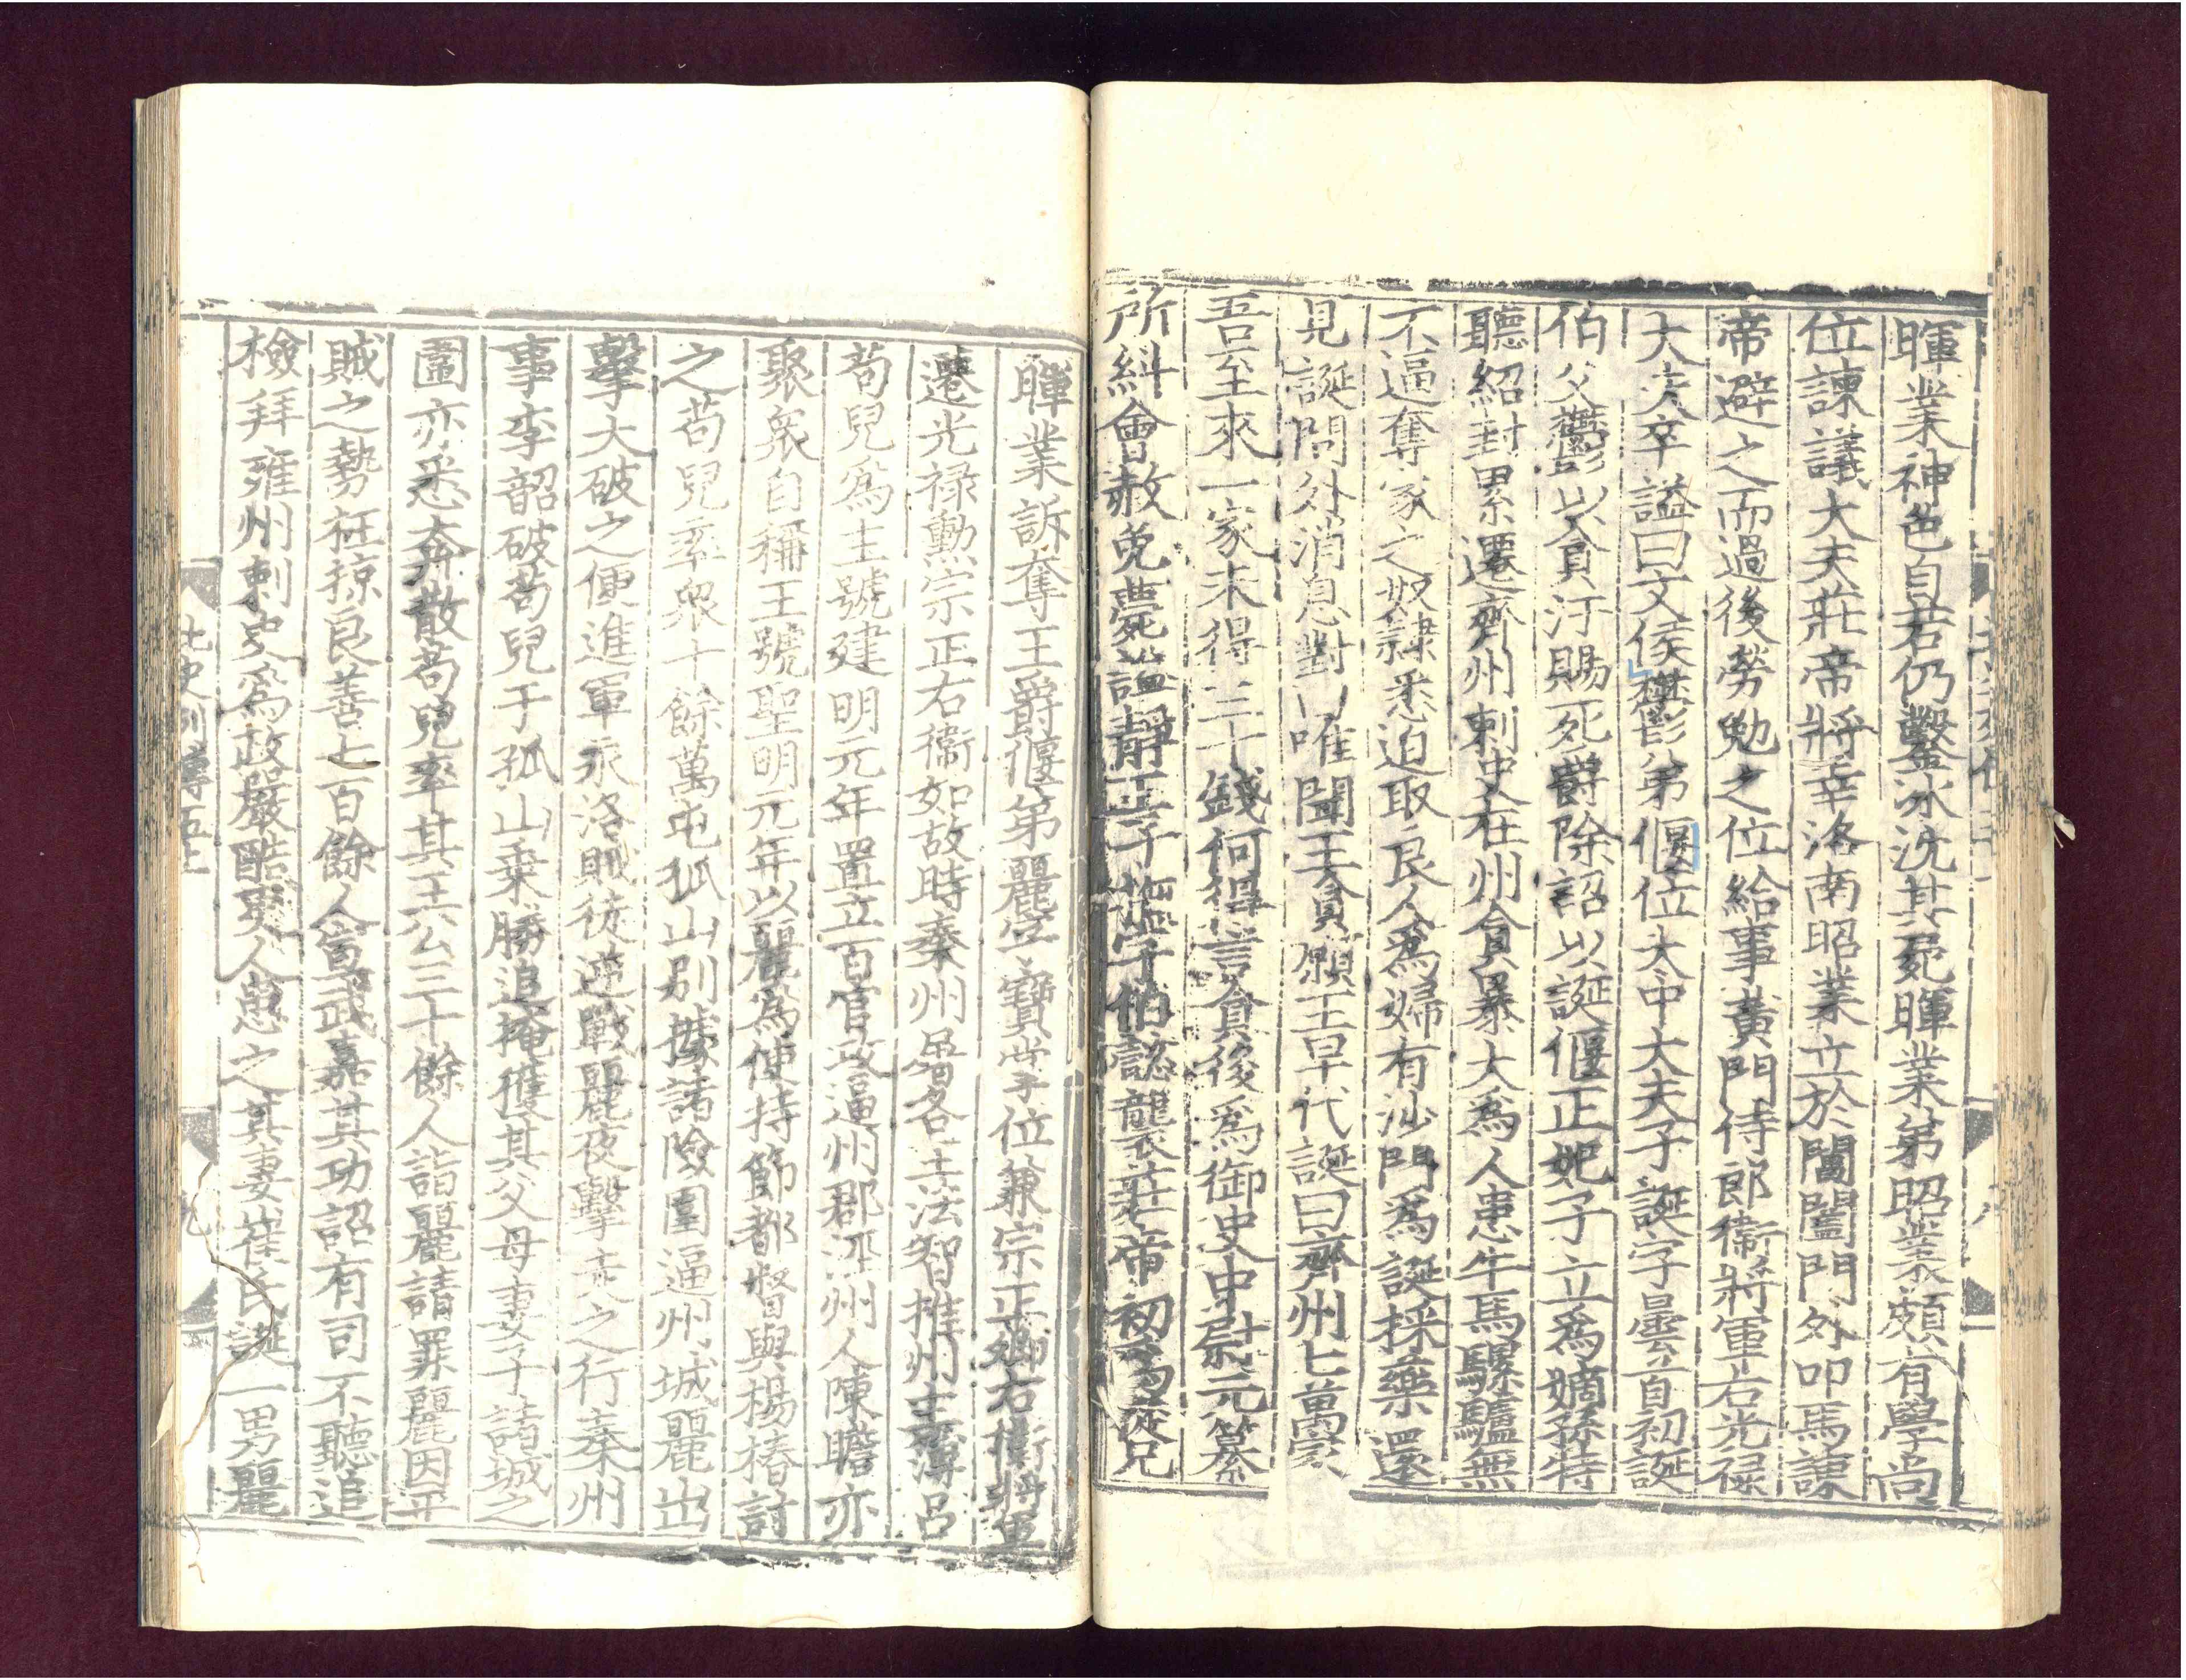 暉業神色自若仍鑿冰沈其屍暉業弟昭業頗有學尚
位諫議大夫莊帝將幸洛南昭業立於閶闔門外叩馬諫
帝避之而過後勞勉之位給事黃門侍郎衞將軍右光祿
大夫卒謚曰文侯鬱弟偃位大中大夫子誕字曇首初誕
伯父鬱以貪汙賜死爵除詔以誕偃正妃子立爲嫡孫特
聽紹封累遷齊州刺史在州貪暴大爲人患牛馬騾驢無
不逼奪家之奴隷悉迫取良人爲婦有沙門爲誕採藥還
見誕問外消息對曰唯聞王貪願王早代誕曰齊州七萬家
吾至來一家未得三十錢何得言貪後爲御史中尉元纂
所糾會赦免薨謚靜王子撫字伯懿襲莊帝初爲從兄
暉業訴奪王爵偃弟麗字寶掌位兼宗正卿右衞將軍
遷光祿勲宗正右衞如故時秦州屠各王法智推州主簿呂
苟兒爲主號建明元年置立百官攻逼州郡涇州人陳瞻亦
聚衆自稱王號聖明元年以麗爲使持節都督與楊椿討
之苟兒率衆十餘萬屯孤山別據諸險圍逼州城麗出
擊大破之便進軍永洛賊徒逆戰麗夜擊走之行秦州
事李韶破苟兒于孤山乗勝追掩獲其父母妻子諸城之
圍亦悉奔散苟兒率其王公三十餘人詣麗請罪麗因平
賊之勢枉掠良善七百餘人宣武嘉其功詔有司不聽追
檢拜雍州刺史爲政嚴酷吏人患之其妻崔氏誕一男麗
北史列傳五上 九